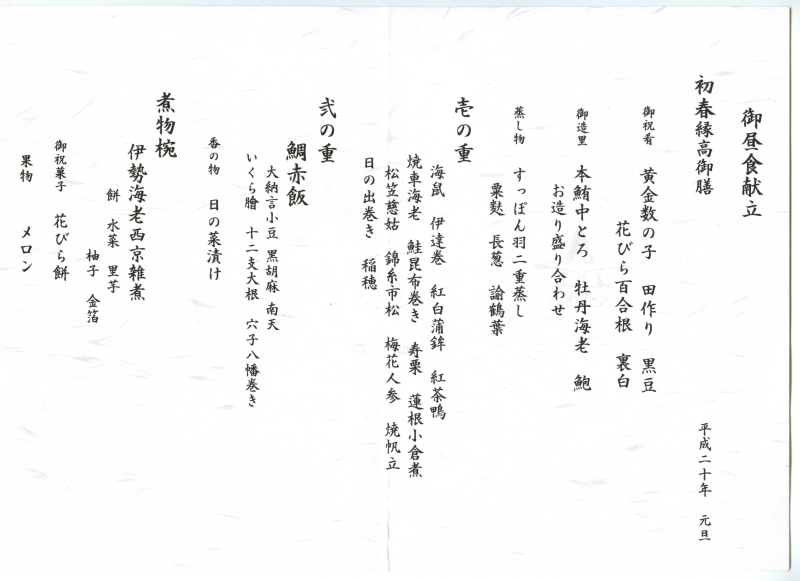 御昼食献立
初春縁高御膳
平成二十年 元旦
御祝肴 黄金数の子 田作り 黒豆
花びら百合根 裏白
御造里 本鮪中とろ 牡丹海老 鮑
お造り盛り合わせ
蒸し物 すっぽん羽二重蒸し
粟麩 長葱 諭鶴葉
壱の重
海鼠 伊達巻 紅白蒲鉾 紅茶鴨
焼車海老 鮭昆布巻き 寿栗 蓮根小倉煮
松笠慈姑 錦糸市松 梅花人参 焼帆立
日の出巻き 稲穂
弐の重
鯛赤飯
大納言小豆 黒胡麻 南天
いくら膾 十二支大根 穴子八幡巻き
香の物 日の菜漬け
煮物椀
伊勢海老西京雑煮
餅 水菜 里芋
柚子 金箔
御祝菓子 花びら餅
果物 メロン